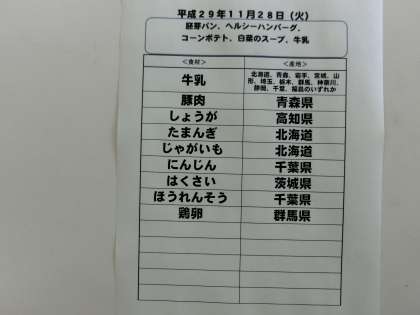 平成29年11月28日（火）
胚芽パン、ヘルシーハンバーグ、
コーンポテト、白菜のスープ、牛乳
＜食材＞ ＜産地＞
牛乳 北海道、青森、岩手、茨城、山
形、埼玉、栃木、群馬、神奈川、
静岡、千葉、福島のいずれか
豚肉 青森県
しょうが 高知県
たまんぎ 北海道
じゃがいも 北海道
にんじん 千葉県
はくさい 茨城県
ほうれんそう 千葉県
鶏卵 群馬県